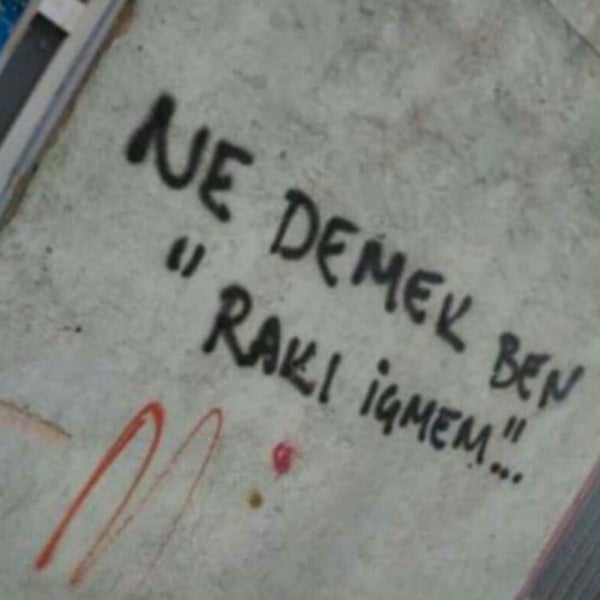 NE DEMEK BEN
" RAKI iÇMEM"...